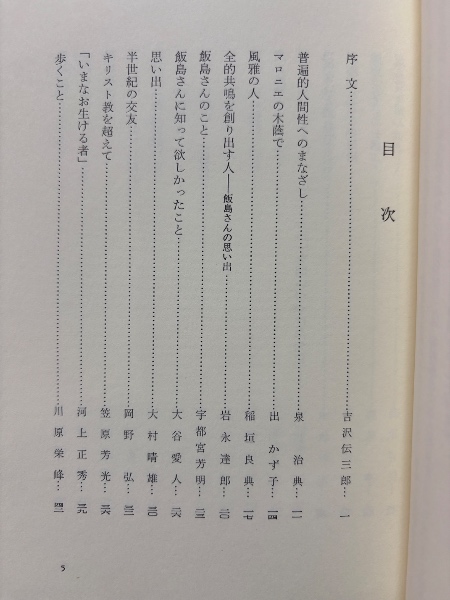 目次
序文……吉沢伝三郎…一
普遍的人間性へのまなざし……泉治典…一一
マロニエの木蔭で……出かず子…一四
風雅の人……稲垣良典…一七
全的共鳴を創り出す人——飯島さんの思い出……岩永達郎…二〇
飯島さんのこと……宇都宮芳明…二三
飯島さんに知って欲しかったこと……大谷愛人…二六
思い出……大村晴雄…三〇
半世紀の交友……岡野弘…三三
キリスト教を超えて……笠原芳光…三六
「いまなお生ける者」……河上正秀…三九
歩くこと……川原栄峰…四一
5